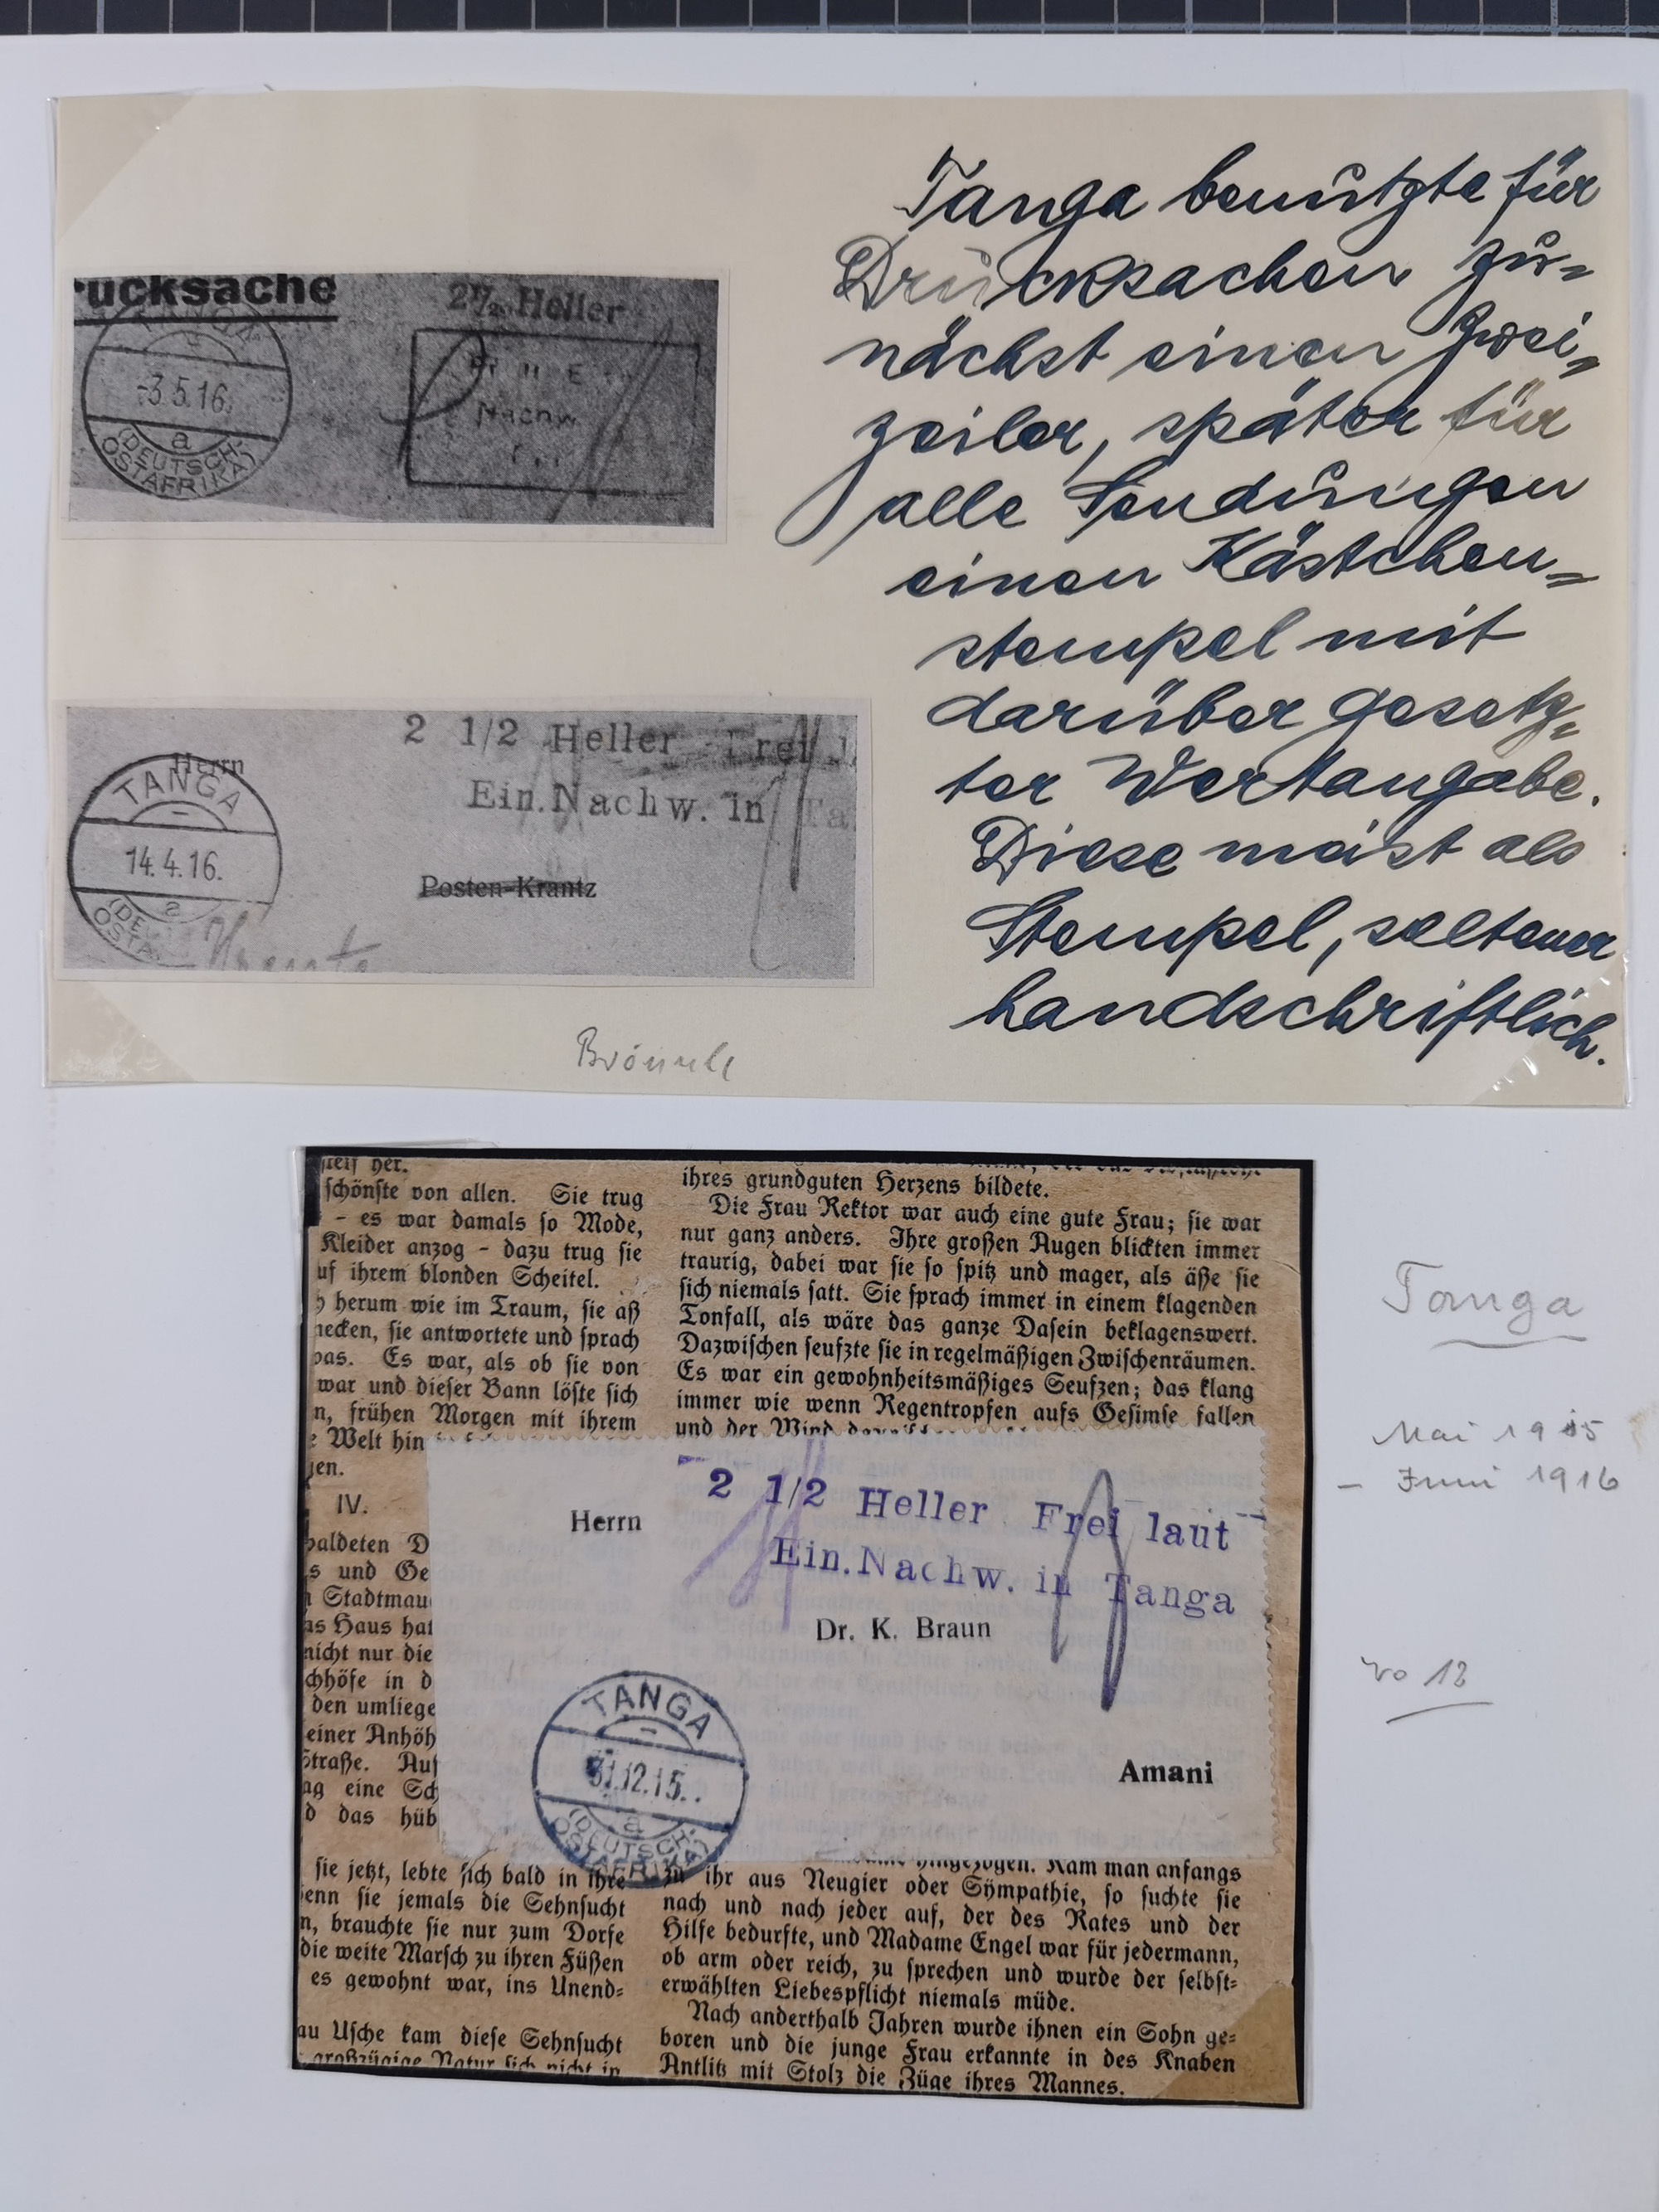 Tanga benützte für
Drucksachen zu=
nächst einen Zwei=
zeiler, später für
alle Sendungen
einen Kästchen=
stempel mit
darüber gesetz=
ter Wertangabe.
Diese meist als
Stempel, seltener
handschriftlich.
rucksache
TANGA
-3.5.16.
a
(DEUTSCH-
OSTAFRIKA)
2 1/2 Heller
Nachw.
2 1/2 Heller Frei l
Ein.Nachw. in Ta
Herrn
TANGA
14.4.16.
a
(DE
OSTA
Posten-Krantz
schönste von allen. Sie trug
- es war damals so Mode,
Kleider anzog - dazu trug sie
uf ihrem blonden Scheitel.
h herum wie im Traum, sie aß
hecken, sie antwortete und sprach
pas. Es war, als ob sie von
war und dieser Bann löste sich
n, frühen Morgen mit ihrem
e Welt hin
jen.
IV.
paldeten D
s und Ge
n Stadtmau
as Haus hat
nicht nur die
chhöfe in d
den umliege
einer Anhöh
Straße. Auf
ag eine Sch
d das hüb
sie jetzt, lebte sich bald in ihre
enn sie jemals die Sehnsucht
n, brauchte sie nur zum Dorfe
die weite Marsch zu ihren Füßen
es gewohnt war, ins Unend=
au Usche kam diese Sehnsucht
großzügige Natur sich nicht in
ihres grundguten Herzens bildete.
Die Frau Rektor war auch eine gute Frau; sie war
nur ganz anders. Ihre großen Augen blickten immer
traurig, dabei war sie so spitz und mager, als äße sie
sich niemals satt. Sie sprach immer in einem klagenden
Tonfall, als wäre das ganze Dasein beklagenswert.
Dazwischen seufzte sie in regelmäßigen Zwischenräumen.
Es war ein gewohnheitsmäßiges Seufzen; das klang
immer wie wenn Regentropfen aufs Gesimse fallen
und der Wind
2 1/2 Heller Frei laut
Ein.Nachw. in Tanga
Herrn
Dr. K. Braun
Amani
TANGA
31.12.15.
a
(DEUTSCH-
OSTAFRIKA)
hingezogen. Kam man anfangs
zu ihr aus Neugier oder Sympathie, so suchte sie
nach und nach jeder auf, der des Rates und der
Hilfe bedurfte, und Madame Engel war für jedermann,
ob arm oder reich, zu sprechen und wurde der selbst=
erwählten Liebespflicht niemals müde.
Nach anderthalb Jahren wurde ihnen ein Sohn ge=
boren und die junge Frau erkannte in des Knaben
Antlitz mit Stolz die Züge ihres Mannes.
Tanga
Mai 1915
- Juni 1916